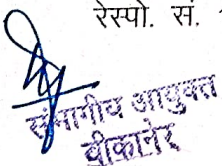 रेस्पो. सं.
संभागीय आयुक्त
बीकानेर